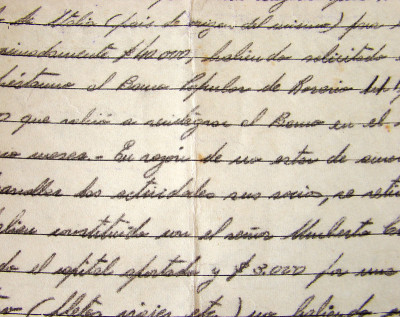 de Italia (país de origen del mismo) por
$ 40.000, habiendo solicitado
préstamo al Banco Popular de Rosario
que volvió a reintegrar al Banco en el
marca.- En razón de no estar de acuer
las actividades sus socios, se reti
constituida con el señor Umberto
do el capital aportado y $ 3.000 por una
(fletes, viajes, etc.) no habiendo